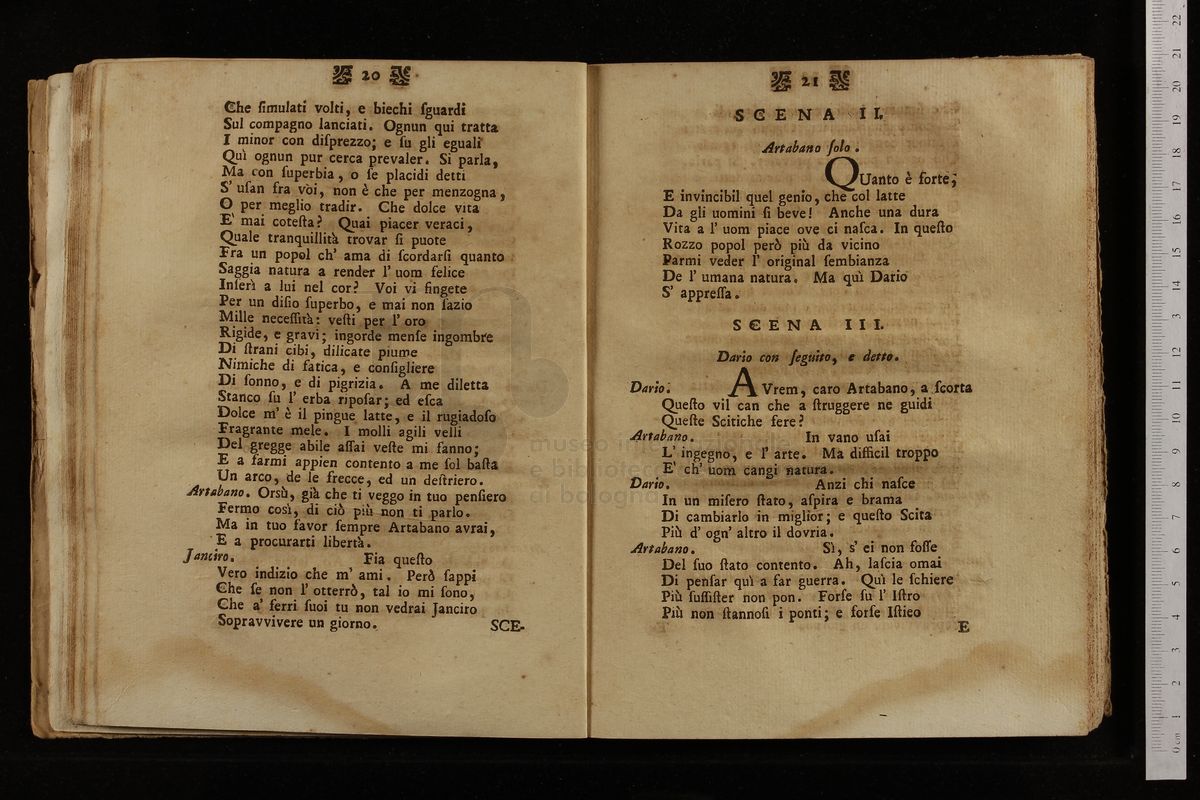 20
Che ſimulati volti, e biechi ſguardi
Sul compagno lanciati. Ognun qui tratta
I minor con diſprezzo; e ſu gli eguali
Quì ognun pur cerca prevaler. Si parla,
Ma con ſuperbia, o ſe placidi detti
S' uſan fra voi, non è che per menzogna,
O per meglio tradir. Che dolce vita
E' mai coteſta? Quai piacer veraci,
Quale tranquillità trovar ſi puote
Fra un popol ch' ama di ſcordarſi quanto
Saggia natura a render l' uom felice
Inſerì a lui nel cor? Voi vi fingete
Per un diſio ſuperbo, e mai non ſazio
Mille neceſſità: veſti per l' oro
Rigide, e gravi; ingorde menſe ingombre
Di ſtrani cibi, dilicate piume
Nimiche di fatica, e conſigliere
Di ſonno, e di pigrizia. A me diletta
Stanco ſu l' erba ripoſar; ed eſca
Dolce m' è il pingue latte, e il rugiadoſo
Fragrante mele. I molli agili velli
Del gregge abile aſſai veſte mi fanno;
E a farmi appien contento a me ſol baſta
Un arco, de le frecce, ed un deſtriero.
Artabano. Orsù, già che ti veggo in tuo penſiero
Fermo così, di ciò più non ti parlo.
Ma in tuo favor ſempre Artabano avrai,
E a procurarti libertà.
Janciro. Fia queſto
Vero indizio che m' ami. Però ſappi
Che ſe non l' otterrò, tal io mi ſono,
Che a' ferri ſuoi tu non vedrai Janciro
Sopravvivere un giorno.
SCE-
21
SCENA II.
Artabano ſolo.
QUanto è forte,
E invincibil quel genio, che col latte
Da gli uomini ſi beve! Anche una dura
Vita a l' uom piace ove ci naſca. In queſto
Rozzo popol però più da vicino
Parmi veder l' original ſembianza
De l' umana natura. Ma quì Dario
S' appreſſa.
SCENA III.
Dario con ſeguito, e detto.
Dario. AVrem, caro Artabano, a ſcorta
Queſto vil can che a ſtruggere ne guidi
Queſte Scitiche fere?
Artabano. In vano uſai
L' ingegno, e l' arte. Ma difficil troppo
E' ch' uom cangi natura.
Dario. Anzi chi naſce
In un miſero ſtato, aſpira e brama
Di cambiarlo in miglior; e queſto Scita
Più d' ogn' altro il dovria.
Artabano. Sì, s' ei non foſſe
Del ſuo ſtato contento. Ah, laſcia omai
Di penſar quì a far guerra. Quì le ſchiere
Più ſuſſiſter non pon. Forſe ſu l' Iſtro
Più non ſtannoſi i ponti; e forſe Iſtieo
E
museo internazionale
e biblioteca
di bologna